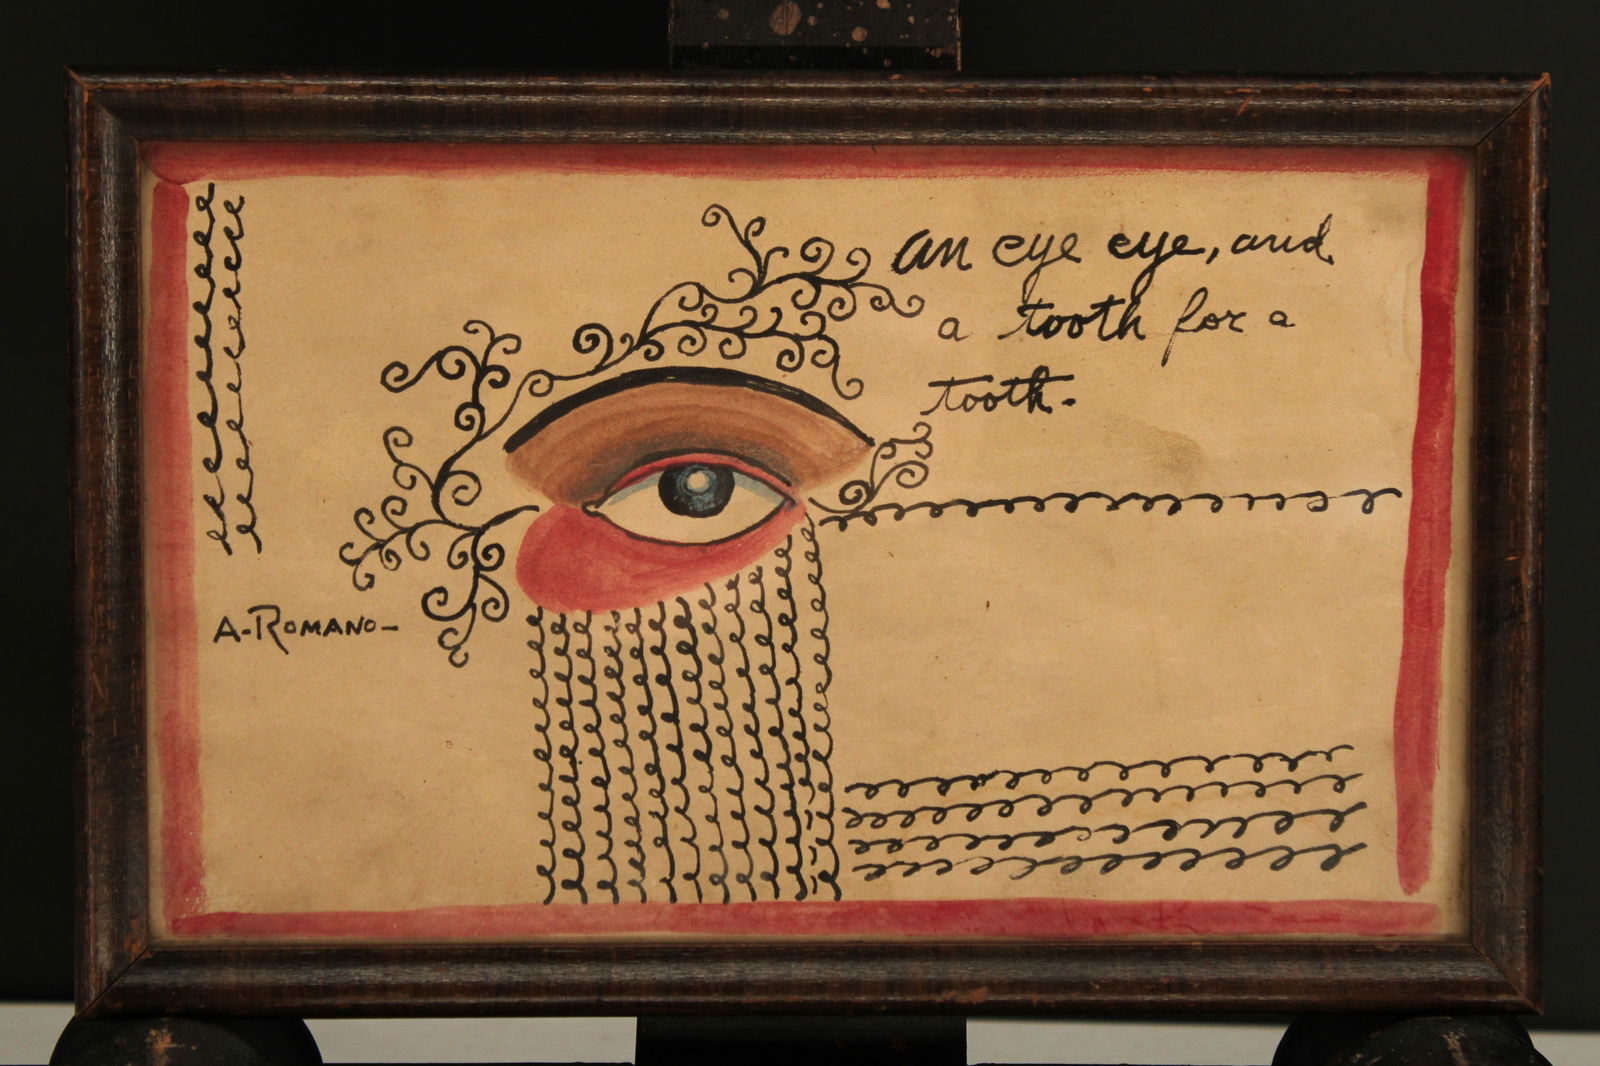 an eye eye, and
a tooth for a
tooth.
A-ROMANO-